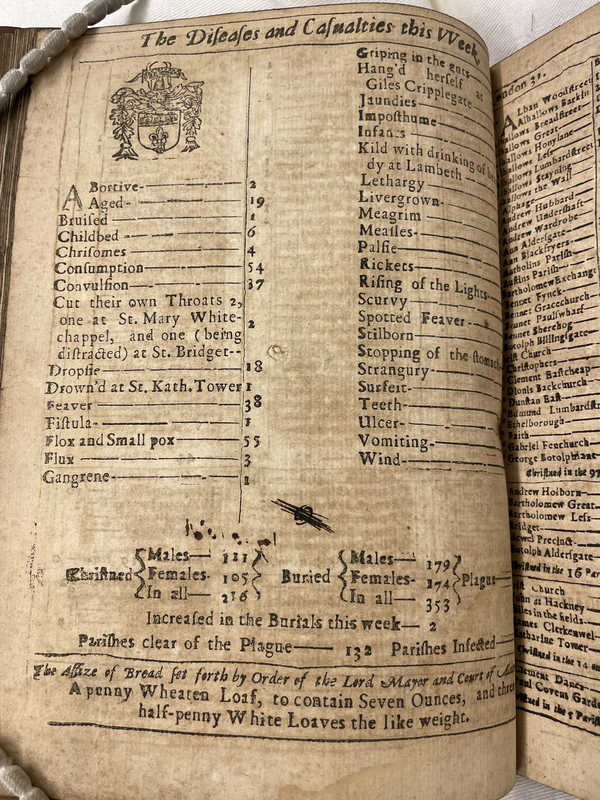 The Diseases and Casualties this Week.
Abortive- 2
Aged- 19
Bruised 1
Childbed 6
Chrisomes 4
Consumption 54
Convulsion 37
Cut their own Throats 2,
one at St. Mary White-
chappel, and one (being 2
distracted) at St. Bridget--
Dropsie 18
Drown'd at St. Kath. Tower 1
Feaver 38
Fistula 1
Flox and Small pox 55
Flux 3
Gangrene- 1
Griping in the guts
Hang'd herself at
Giles Cripplegate
Jaundies
Imposthume
Infans
Kild with drinking of
dy at Lambeth
Lethargy
Livergrown
Meagrim
Measles
Palsie
Rickets
Rising of the Lights
Scurvy
Spotted Feaver
Stilborn
Stopping of the stomach
Strangury
Surfeit
Teeth
Ulcer
Vomiting
Wind
Christned Males 111 Females- 105 In all 216
Buried Males 179 Females- 174 In all 353 Plague
Increased in the Burials this week— 2
Parishes clear of the Plague— 132 Parishes Infected
The Assize of Bread set forth by Order of the Lord Mayor and Court of
A penny Wheaten Loaf, to contain Seven Ounces, and three
half-penny White Loaves the like weight.
ondon 21.
Alban Woodstreet
Alhallows Barkin
hallows Breadstreet
hallows Great
hallows Honylane
hallows Less
hallows Lumbardstreet
hallows Stayning
hallows the Wall
Alphage
Andrew Hubbard
Andrew Undershaft
Andrew Wardrobe
Ann Aldersgate
Ann Blackfryers
Antholins Parish
Austins Parish
Bartholomew Exchange
Bennet Fynck
Bennet Gracechurch
Bennet Paulswharf
Bennet Sherehog
Botolph Billingsgate
Christ Church
Christophers
Clement Eastcheap
Dionis Backchurch
Dunstan East
Edmund Lumbardstr
Ethelborough
Faith
Gabriel Fenchurch
George Botolphlane
Christned in the 97
Andrew Holborn
Bartholomew Great
Bartholomew Less
Bridget
Bridewel Precinct
Botolph Aldersgate
Christned in the 16 Par
Church
John at Hackney
Giles in the fields
James Clerkenwel
Katharine Tower
Christned in the
Clement Danes
Paul Covent Garden
Christned in the 5 Parish